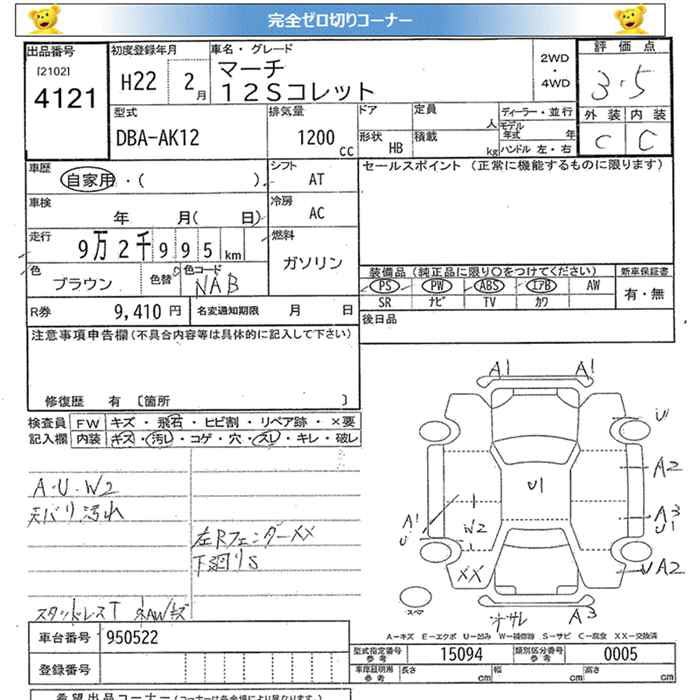 完全ゼロ切りコーナー
出品番号 初度登録年月 車名・グレード 2WD・4WD 評価点
[2102] 4121 H22 2月 マーチ 3.5
12Sコレット 外装 内装
型式 排気量 ドア 定員 人 ディーラー・並行 C C
DBA-AK12 1200cc モデル年式 年
形状 HB 積載 kg ハンドル 左・右
車歴 シフト セールスポイント (正常に機能するものに限ります)
自家用・( ) AT
車検 冷房
年 月( 日) AC
走行 燃料
9万2千995km ガソリン
色 色替 色コード 装備品(純正品に限り〇をつけてください) 新車保証書
ブラウン NAB PS PW ABS エアB AW 有・無
SR ナビ TV カワ
R券 9,410円 名変通知期限 月 日 後日品
注意事項申告欄(不具合内容等は具体的に記入して下さい)
修復歴 有 [箇所 ]
検査員 FW キズ・飛石・ヒビ割・リペア跡・×要
記入欄 内装 キズ・汚レ・コゲ・穴・スレ・キレ・破レ
A・U・W2
天バリ汚れ
左Rフェンダーxx
下廻りS
スタッドレスT
A1 A1
U
A2
U1
A3
U1
A1
U
W2
XX
UA2
スペア
A3
A-キズ E-エクボ U-凹み W-補修跡 S-サビ C-腐食 XX-交換済
車台番号 950522
登録番号
型式指定番号 参考 15094 類別区分番号 参考 0005
車庫証明用 参考 長さ cm 幅 cm 高さ cm
希望出品コーナー(コーナーは各会場により異なります。)